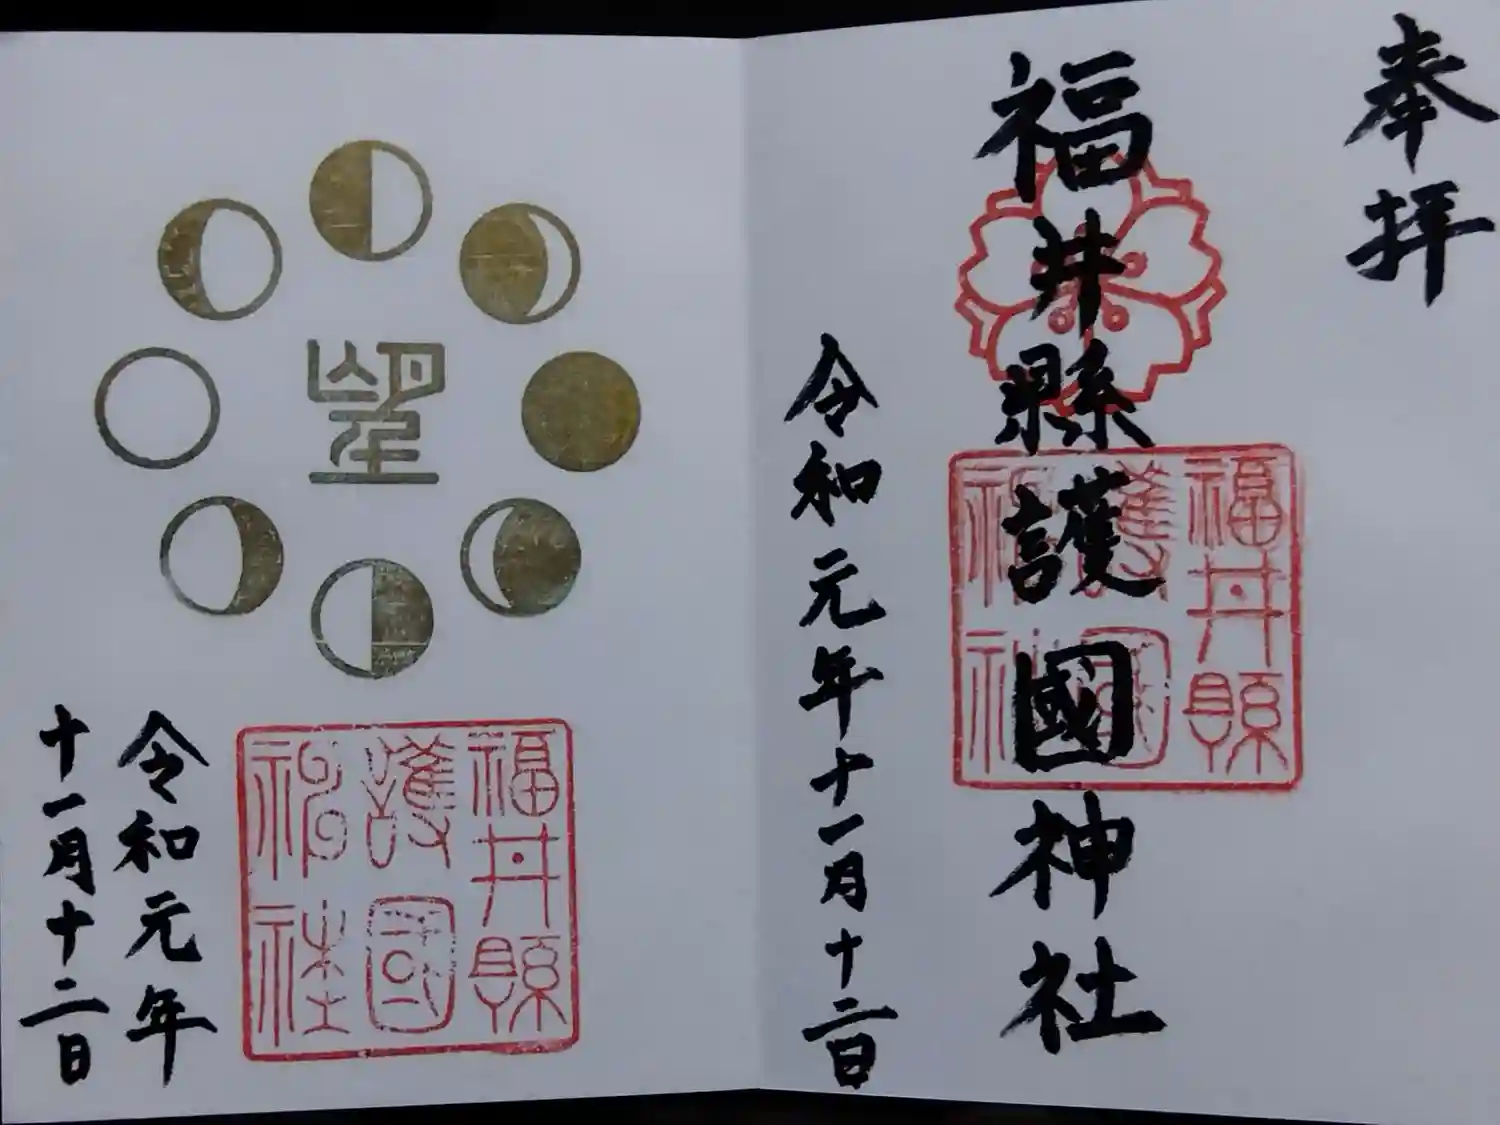 奉拝
福井縣護國神社
令和元年十一月十二日
福井縣
護國
神社
望
福井縣
護國
神社
令和元年
十一月十二日